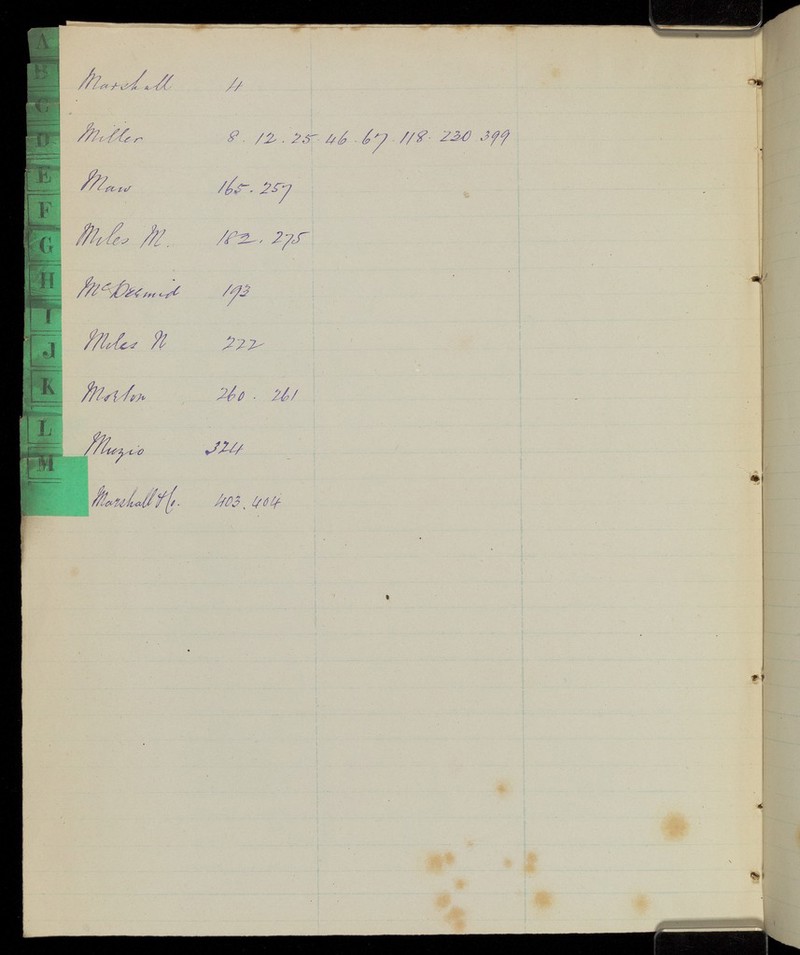 A
B
C
D
E
F
G
H
I
J
K
L
M
Marshall 4
Miller 8 . 12 . 25 . 46 . 67 . 118 . 230 399
Maw 165 . 257
Miles M. 182 . 275
McDermid 193
Miles N 222
Morton 260 . 261
Muzio 324
Marshall & Co. 403 . 404